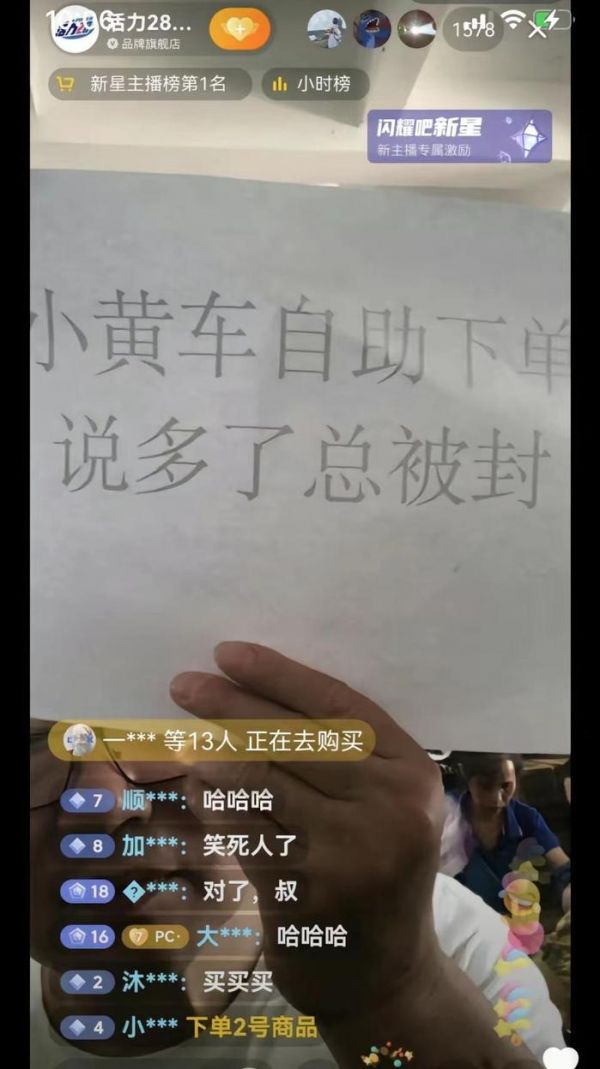 活力28...
品牌旗舰店
1578
新星主播榜第1名
小时榜
闪耀吧新星
新主播专属激励
小黄车自助下单
说多了总被封
一*** 等13人 正在去购买
7 顺***：哈哈哈
8 加***：笑死人了
18 �***：对了，叔
16 7 PC· 大***：哈哈哈
2 沐***：买买买
4 小*** 下单2号商品